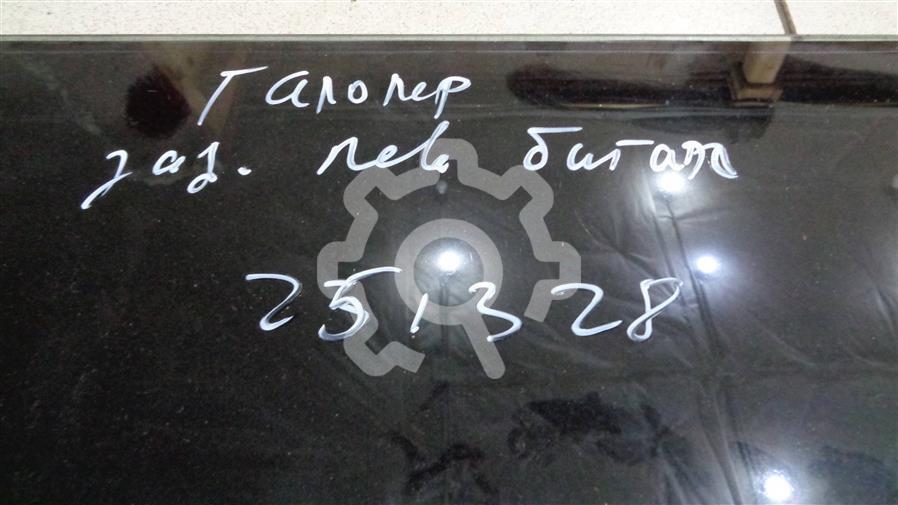 Галопер
зад. лев. багаж
251328